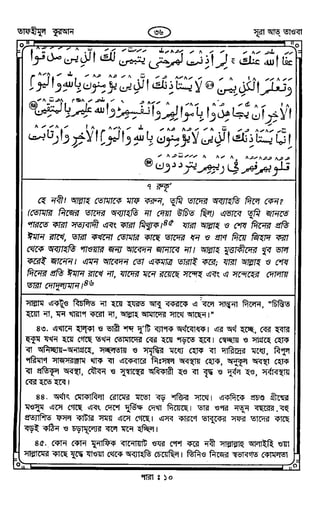 তাফহীমুল কুরআন
৩৬
সূরা আত্ তাওবা
عَفَا اللَّهُ عَنْكَ ۚ لِمَ أَذِنْتَ لَهُمْ حَتَّى يَتَبَيَّنَ لَكَ الَّذِينَ صَدَقُوا
وَتَعْلَمَ الْكَاذِبِينَ ﴿٤٣﴾ لَا يَسْتَأْذِنُكَ الَّذِينَ يُؤْمِنُونَ بِاللَّهِ وَالْيَوْمِ
الْآخِرِ أَنْ يُجَاهِدُوا بِأَمْوَالِهِمْ وَأَنْفُسِهِمْ ۗ وَاللَّهُ عَلِيمٌ بِالْمُتَّقِينَ ﴿٤٤﴾
إِنَّمَا يَسْتَأْذِنُكَ الَّذِينَ لَا يُؤْمِنُونَ بِاللَّهِ وَالْيَوْمِ الْآخِرِ وَارْتَابَتْ
قُلُوبُهُمْ فَهُمْ فِي رَيْبِهِمْ يَتَرَدَّدُونَ ﴿٤٥﴾
৭ রুকূ'
হে নবী! আল্লাহ তোমাকে মাফ করুন, তুমি তাদের অব্যাহতি দিলে কেন?
(তোমার নিজের তাদের অব্যাহতি না দেয়া উচিত ছিল) এভাবে তুমি জানতে
পারতে কারা সত্যবাদী এবং কারা মিথ্যুক।৪৫ যারা আল্লাহ ও শেষ দিনের প্রতি
ঈমান রাখে, তারা কখনো তোমার কাছে তাদের ধন ও প্রাণ দিয়ে জিহাদ করা
থেকে অব্যাহতি পাওয়ার জন্য আবেদন জানাবে না। আল্লাহ মুত্তাকীদের খুব ভাল
করেই জানেন। এমন আবেদন তো একমাত্র তারাই করে, যারা আল্লাহ ও শেষ
দিনের প্রতি ঈমান রাখে না, যাদের মনে রয়েছে সন্দেহ এবং এ সন্দেহের দোলায়
তারা দোদুল্যমান।৪৬
সাল্লাম একটুও বিচলিত না হয়ে হযরত আবু বকরকে এ বলে সান্ত্বনা দিলেন, "চিন্তিত
হয়ো না, মন খারাপ করো না, আল্লাহ আমাদের সাথে আছেন।"
৪৩. এখানে হাল্কা ও ভারী শব্দ দু'টি ব্যাপক অর্থবোধক। এর অর্থ হচ্ছে, বের হবার
হুকুম যখন হয়ে গেছে তখন তোমাদের বের হয়ে পড়তে হবে। স্বেচ্ছায় ও সাগ্রহে হোক
বা অনিচ্ছায়-অনাগ্রহে, সচ্ছলতায় ও সমৃদ্ধির মধ্যে হোক বা দারিদ্রের মধ্যে, বিপুল
পরিমাণ সাজসরঞ্জাম থাক বা একেবারে নিঃসম্বল অবস্থায় হোক, অনুকূল অবস্থা হোক
বা প্রতিকূল অবস্থা, যৌবন ও সুস্বাস্থ্যের অধিকারী হও বা বৃদ্ধ ও দুর্বল হও, সর্বাবস্থায়
বের হতে হবে।
৪৪. অর্থাৎ মোকাবিলা রোমের মতো বড় শক্তির সাথে। একদিকে প্রচণ্ড গ্রীষ্মের
মওসুম এসে গেছে এবং দেশে দুর্ভিক্ষ দেখা দিয়েছে। তার ওপর নতুন বছরের, বহু
প্রত্যাশিত ফসল কাটার সময় এসে গেছে। এসব কারণে তাবুকের সফর তাদের কাছে
বড়ই কঠিন ও চড়ামূল্যের বলে মনে হচ্ছিল।
৪৫. কোন কোন মুনাফিক বানোয়াট ওযর পেশ করে নবী সাল্লাল্লাহু আলাইহি ওয়া
সাল্লামের কাছে যুদ্ধে যাওয়া থেকে অব্যাহতি চেয়েছিল। তিনিও নিজের স্বভাবগত কোমলতা
পারা : ১০